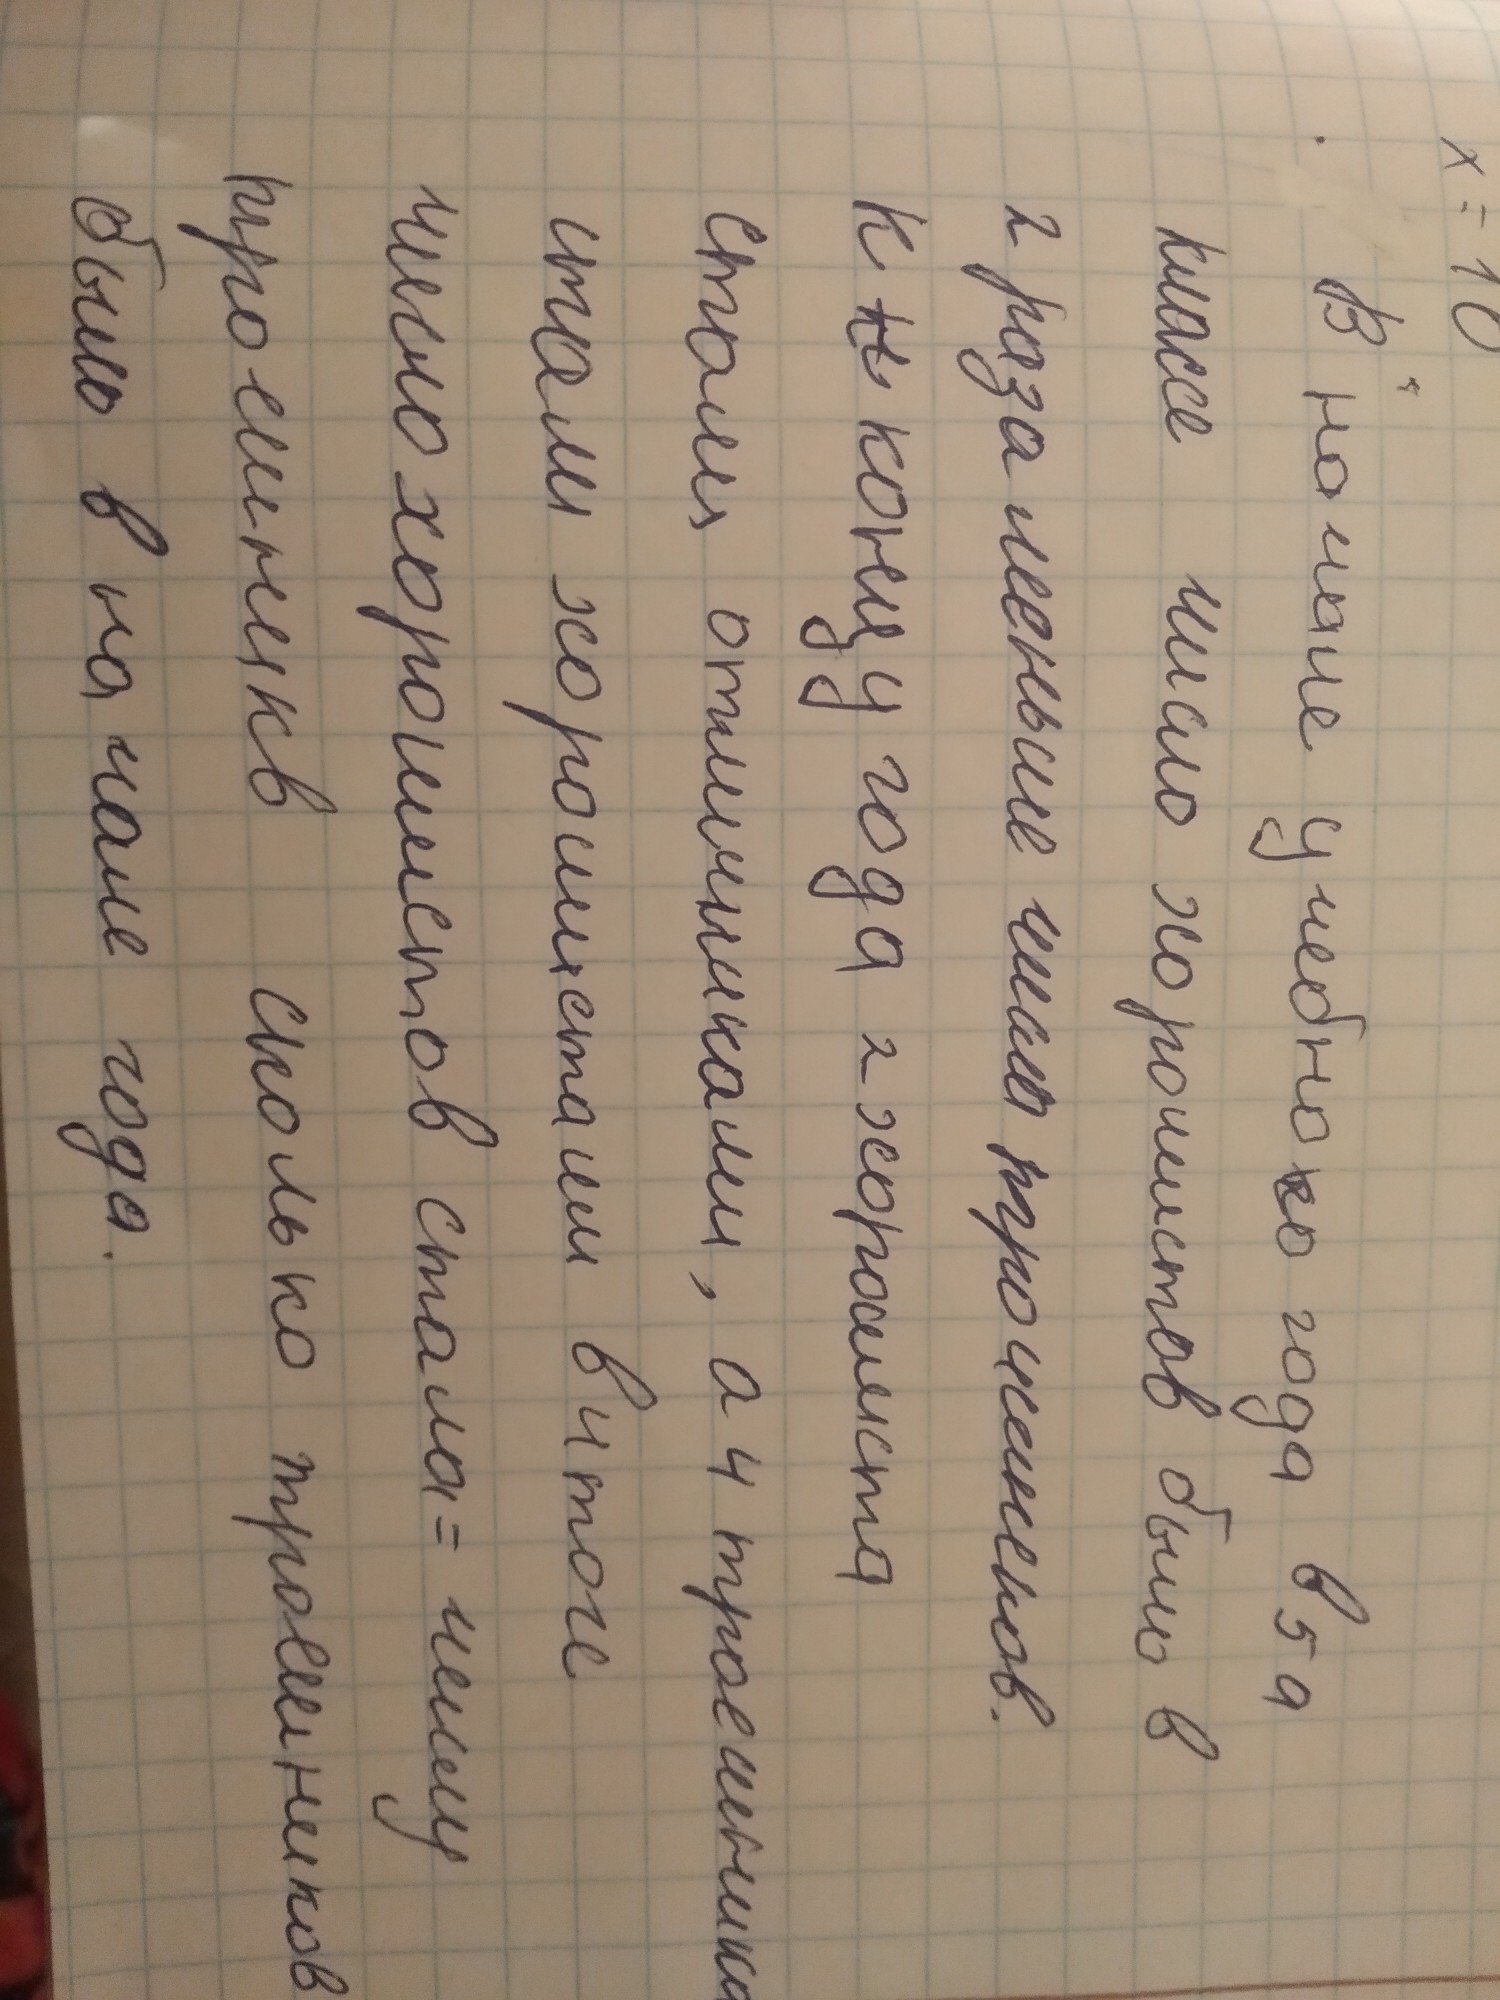 x = 10
В начале учебного года в 5а
классе число хорошистов было в
2 раза меньше числа троечников.
К концу года 2 хорошиста
стали отличниками, а 4 троечника
стали хорошистами в итоге
число хорошистов стало = числу
троечников Сколько троечников
было в начале года.